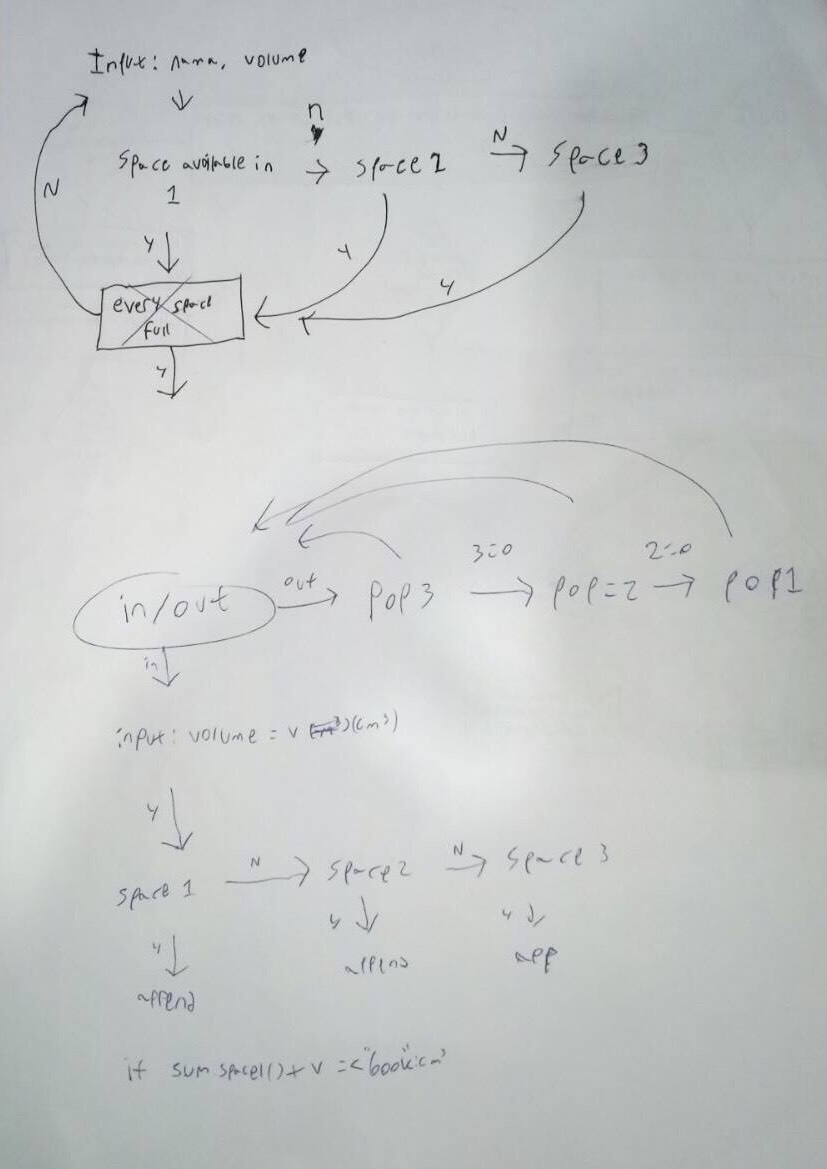 Input: nama, volume
n
N
Space available in
1
space 2
N
space 3
y
y
y
every space
full
y
in/out
out
pop 3
3=0
pop=2
2=0
pop1
in
input: volume = v (cm³)
y
space 1
N
space 2
N
space 3
y
append
y
append
y
app
if sum space1() + v =<